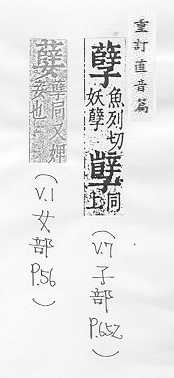 重訂直音篇
孽 魚列切
妖孽 同
上
(V.7) 子部 P.652
同又婢
妾也
(V.1) 女部 P.56